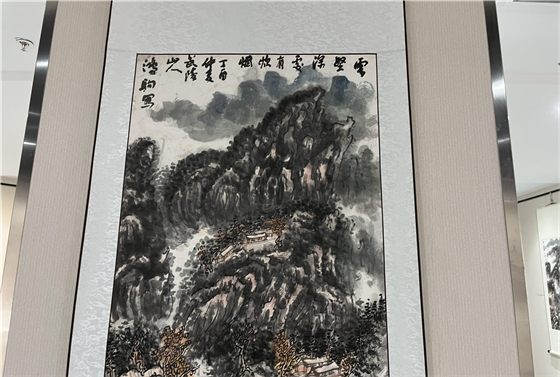 雲壑深處有炊烟
丁酉
仲夏
武陵
山人
鴻鈞寫